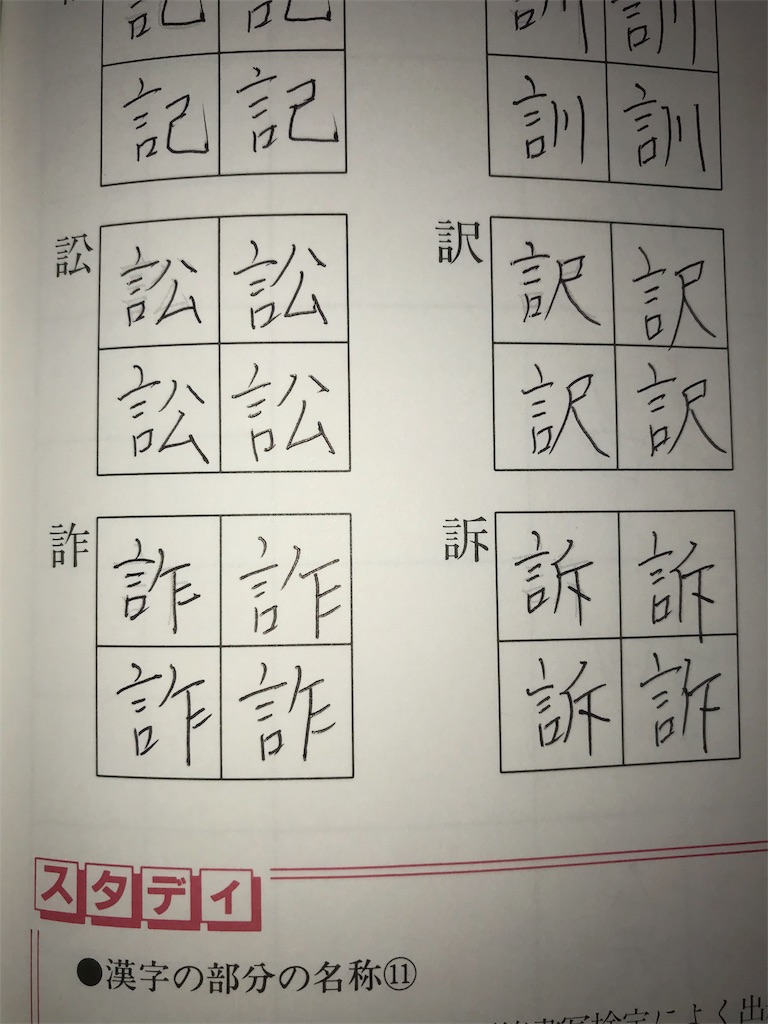 記 記 訓 訓
記 記 訓 訓
訟 訟 訟 訳 訳 訳
訟 訟 訳 訳
詐 詐 詐 訴 訴 訴
詐 詐 訴 訴
スタディ
●漢字の部分の名称⑪
検定によく出